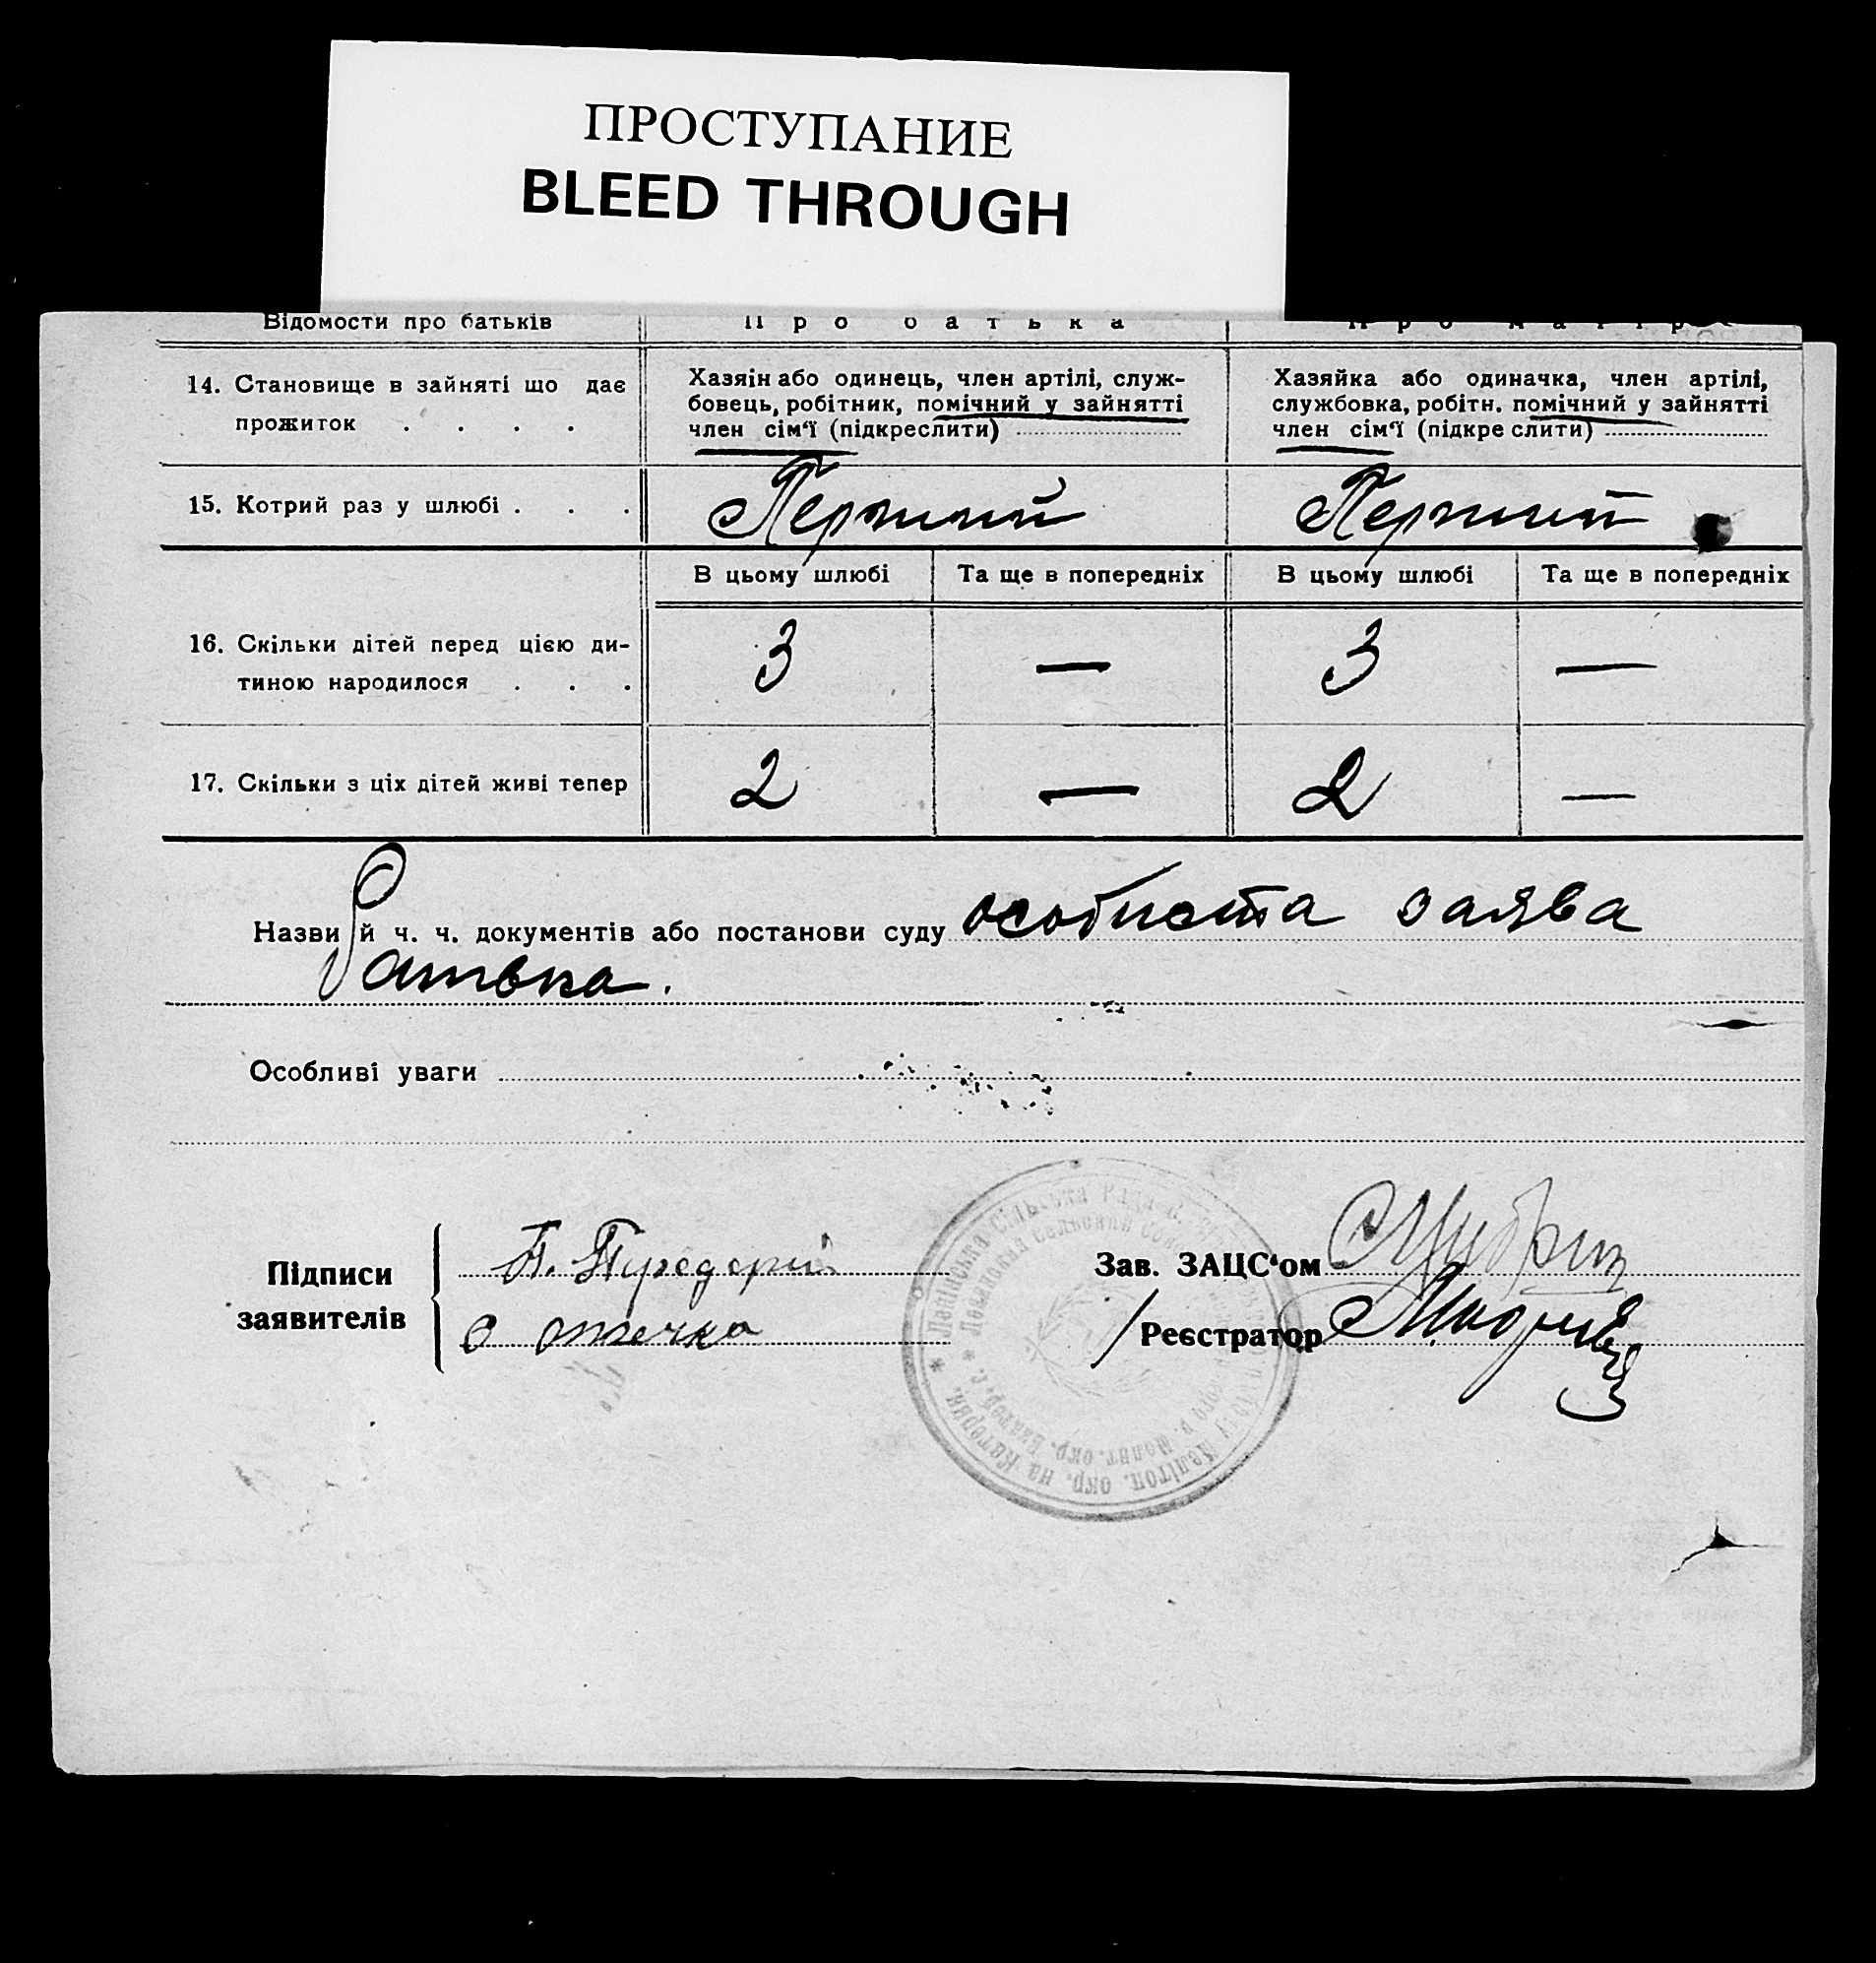 ПРОСТУПАНИЕ
BLEED THROUGH
Відомости про батьків
Про батька
Про матір
14. Становище в зайняті що дає
прожиток . . . .
Хазяін або одинець, член артілі, служ-
бовець, робітник, помічний у зайнятті
член сім'ї (підкреслити)
Хазяйка або одиначка, член артілі,
службовка, робітн. помічний у зайнятті
член сім'ї (підкре слити)
15. Котрий раз у шлюбі . . .
Перший
Перший
В цьому шлюбі
Та ще в попередніх
В цьому шлюбі
Та ще в попередніх
16. Скільки дітей перед цією ди-
тиною народилося . . .
3 — 3 —
17. Скільки з ціх дітей живі тепер
2 — 2 —
Назви й ч. ч. документів або постанови суду особиста заява
батька.
Особливі уваги
Підписи
заявителів
П.
Зав. ЗАЦС'ом
Реєстратор
Сільська Рада
Мелітоп. окр. на Катерин.